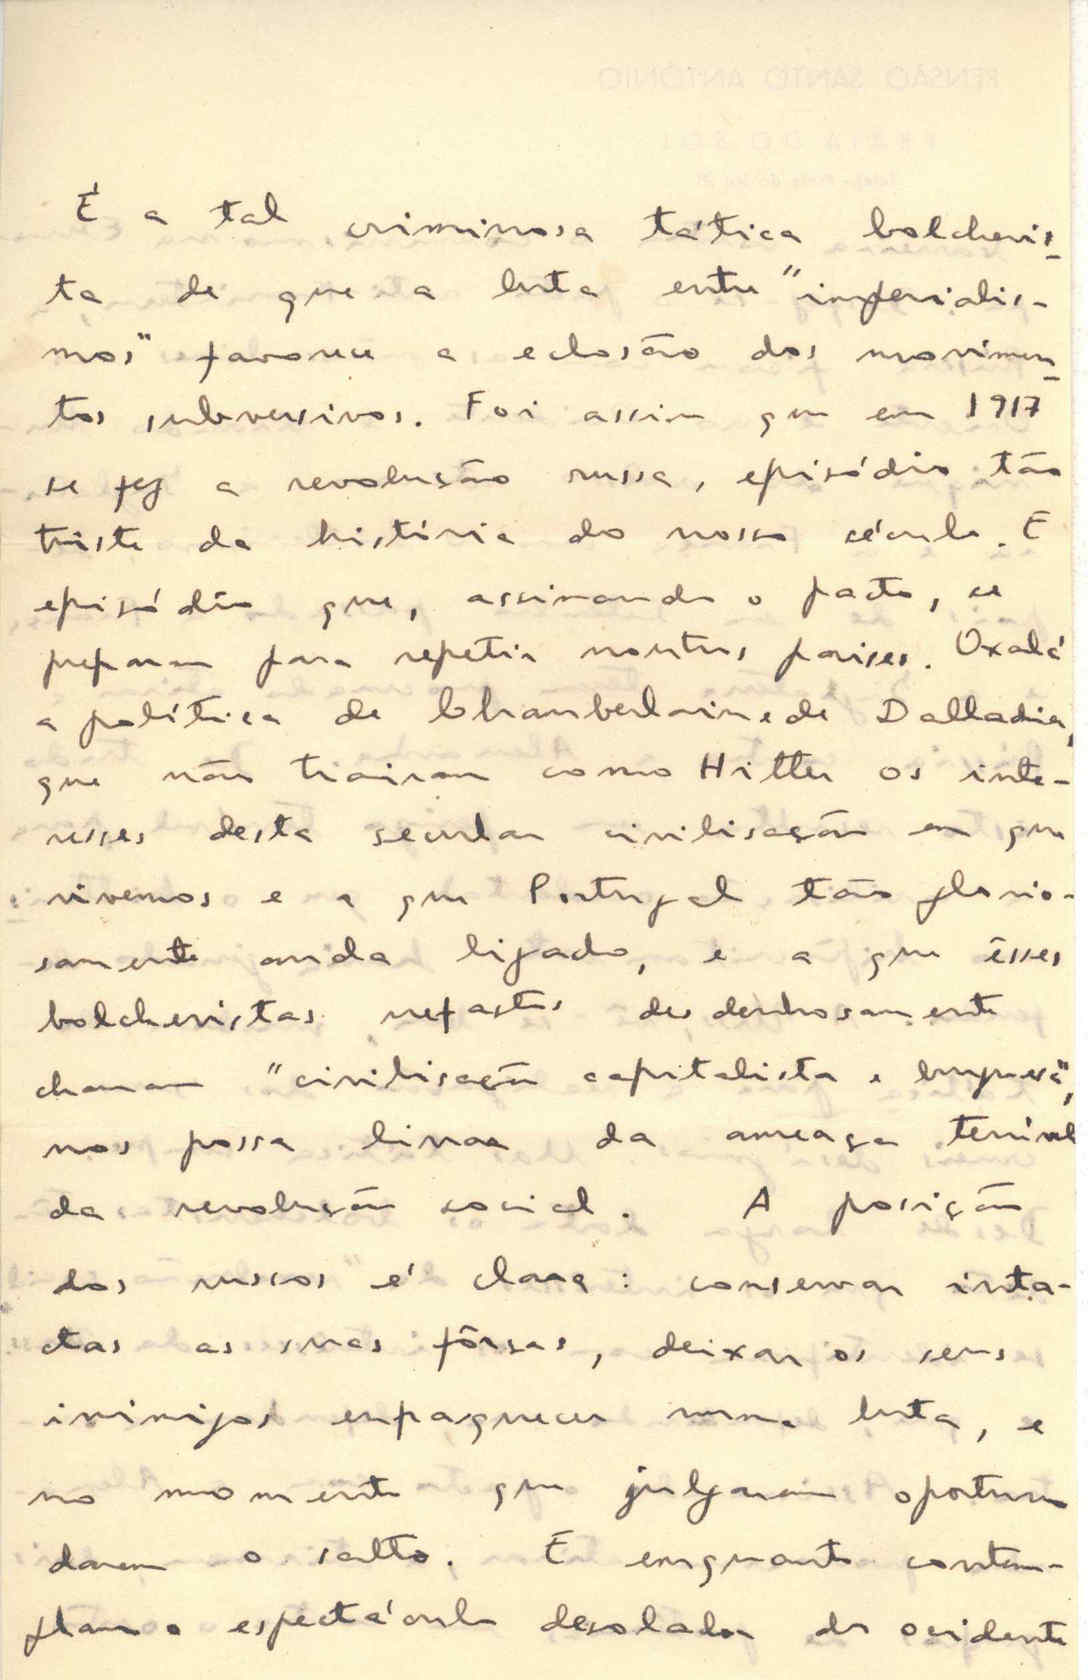 É a tal criminosa tática bolchevis-
ta de que a luta entre "imperialis-
mos" favorece a eclosão dos movimen-
tos subversivos. Foi assim que em 1917
se fez a revolução russa, episódio tão
triste da história do nosso século. E
episódio que, assinando o pacto, se
preparam para repetir noutros países. Oxalá
a política de Chamberlain e de Dalladier,
que não trairam como Hitler os inte-
resses desta secular civilisação em que
vivemos e a que Portugal tão glorio-
samente anda ligado, e a que êsses
bolchevistas nefastos desdenhosamente
chamam "civilisação capitalista e burguesa",
nos possa livrar da ameaça terrível
da revolução social. A posição
dos russos é clara: conservar inta-
ctas as suas fôrças, deixar os seus
inimigos enfraquecer numa luta, e
no momento que julgarem oportuno
darem o salto. E emquanto contem-
plam o espectáculo desolador do ocidente
PENSÃO SANTO ANTÓNIO